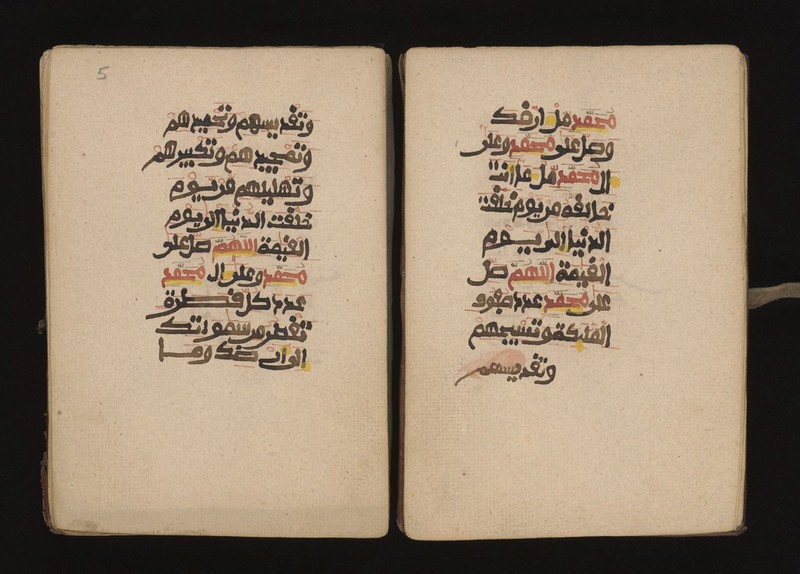 محمد مل ارضك
وصل على محمد وعلى
ال محمد مل ما انت
خالقه من يوم خلقت
الدنيا الى يوم
القيمة اللهم صل
على محمد عدد صفوف
الملئكة وتسبيحهم
وتقديسهم
5
وتقديسهم وتحميدهم
وتمجيدهم وتكبيرهم
وتهليلهم من يوم
خلقت الدنيا الى يوم
القيمة اللهم صل على
محمد وعلى ال محمد
عدد كل قطرة
تقطر من سمواتك
الى ارضك وما